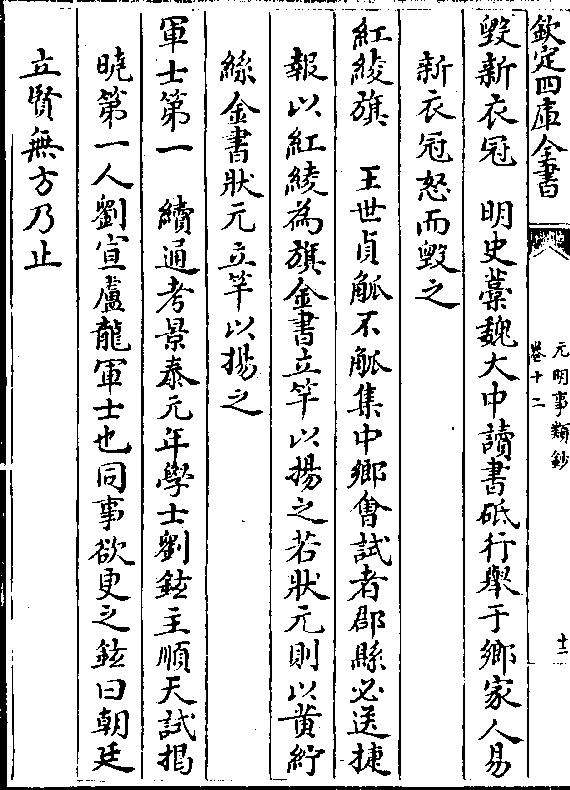 欽定四庫全書
元明事類鈔
卷十二
十二
毀新衣冠　明史藁魏大中讀書砥行舉于鄉家人易
新衣冠怒而毀之
紅綾旗　王世貞觚不觚集中鄉會試者郡縣必送捷
報以紅綾為旗金書立竿以揚之若狀元則以黄紵
絲金書狀元立竿以揚之
軍士第一　續通考景泰元年學士劉鉉主順天試揭
曉第一人劉宣盧龍軍士也同事欲更之鉉曰朝廷
立賢無方乃止